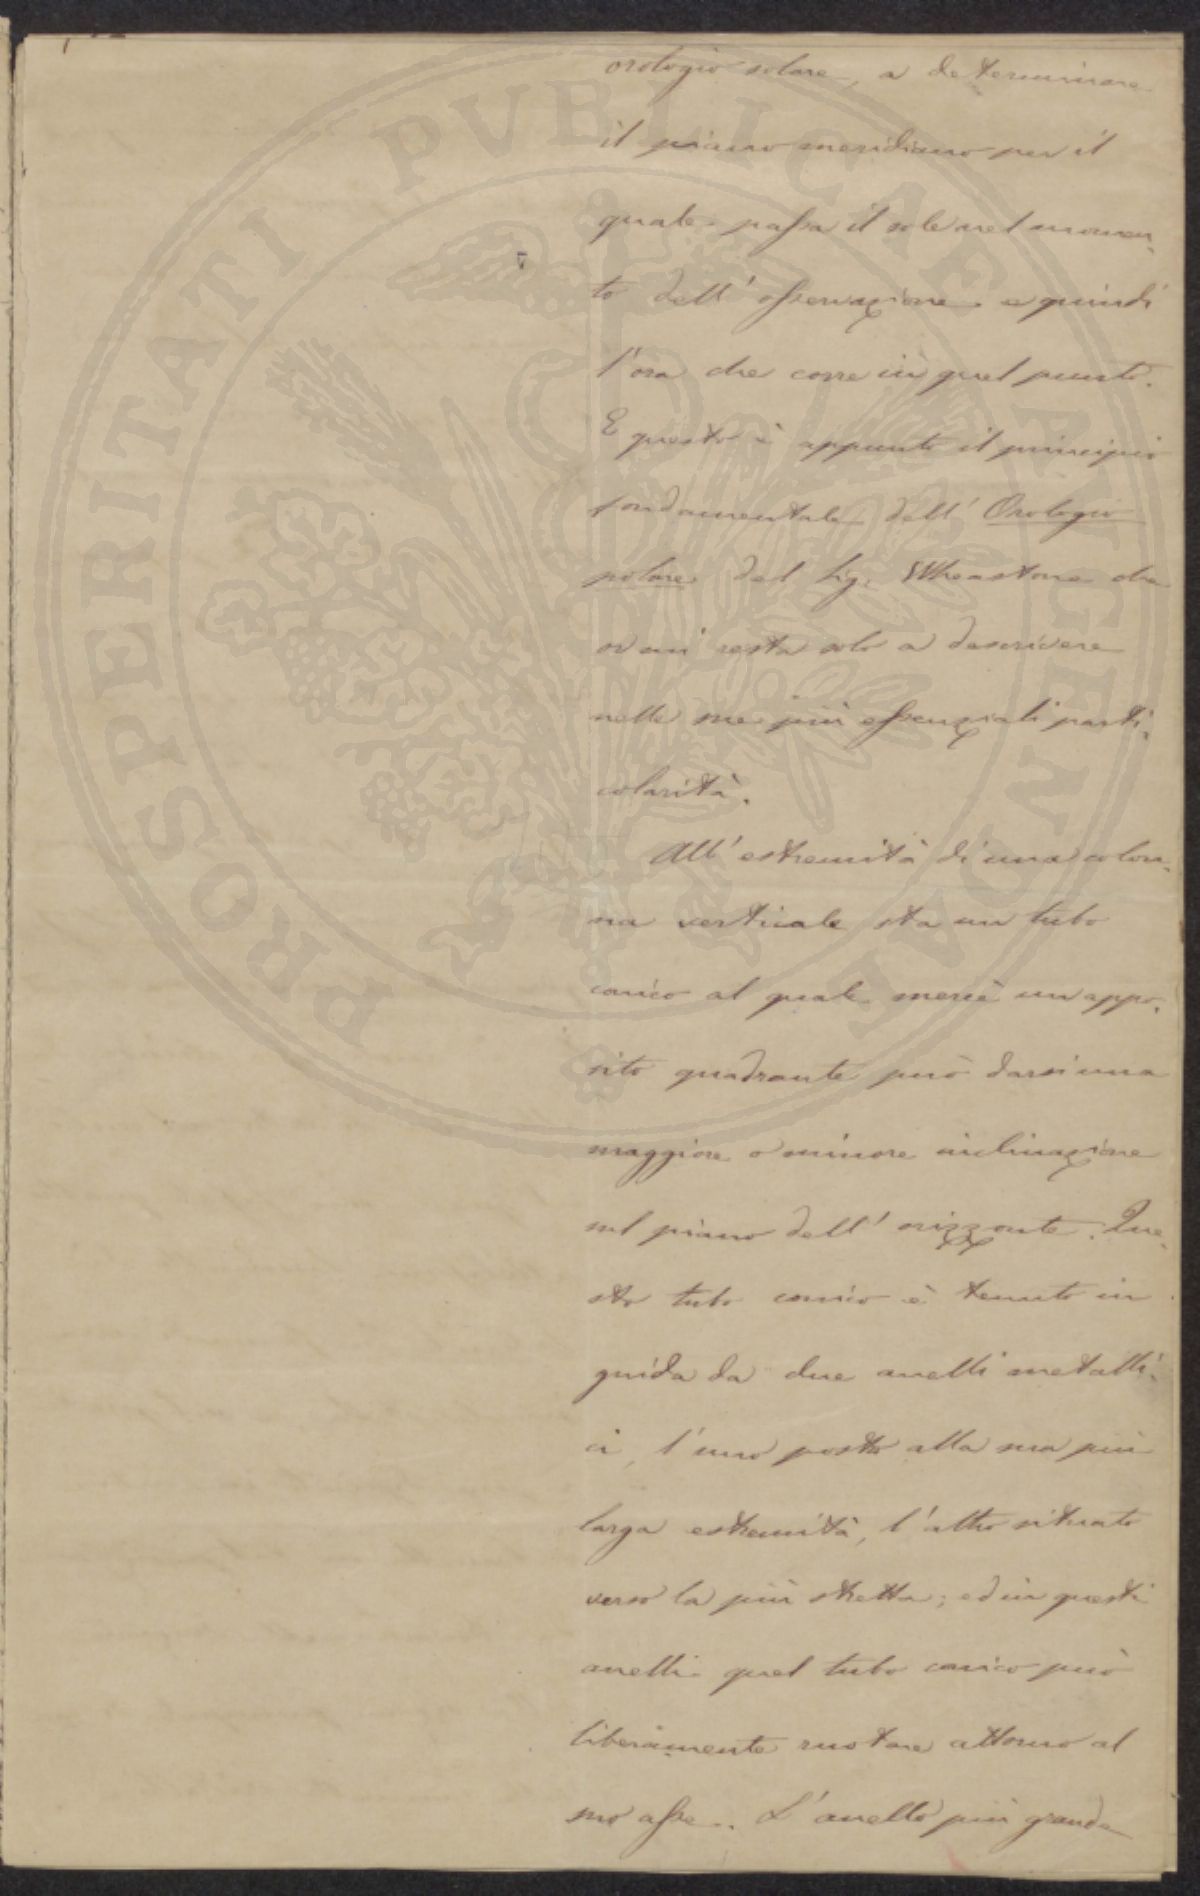 orologio solare, a determinare
il piano meridiano per il
quale passa il sole nel momen-
to dell'osservazione e quindi
l'ora che corre in quel punto.
E questo è appunto il principio
fondamentale dell'Orologio
polare del Sig. Wheastone che
or mi resta solo a descrivere
nelle sue più essenziali parti-
colarità.
All'estremità di una colon-
na verticale sta un tubo
conico al quale mercè un appo-
sito quadrante può darsi una
maggiore o minore inclinazione
sul piano dell'orizzonte. Que-
sto tubo conico è tenuto in
guida da due anelli metalli-
ci, l'uno posto alla sua più
larga estremità, l'altro situato
verso la più stretta; ed in questi
anelli quel tubo conico può
liberamente ruotare attorno al
suo asse. L'anello più grande
PROSPERITATI PVBLICAE AVGENDAE